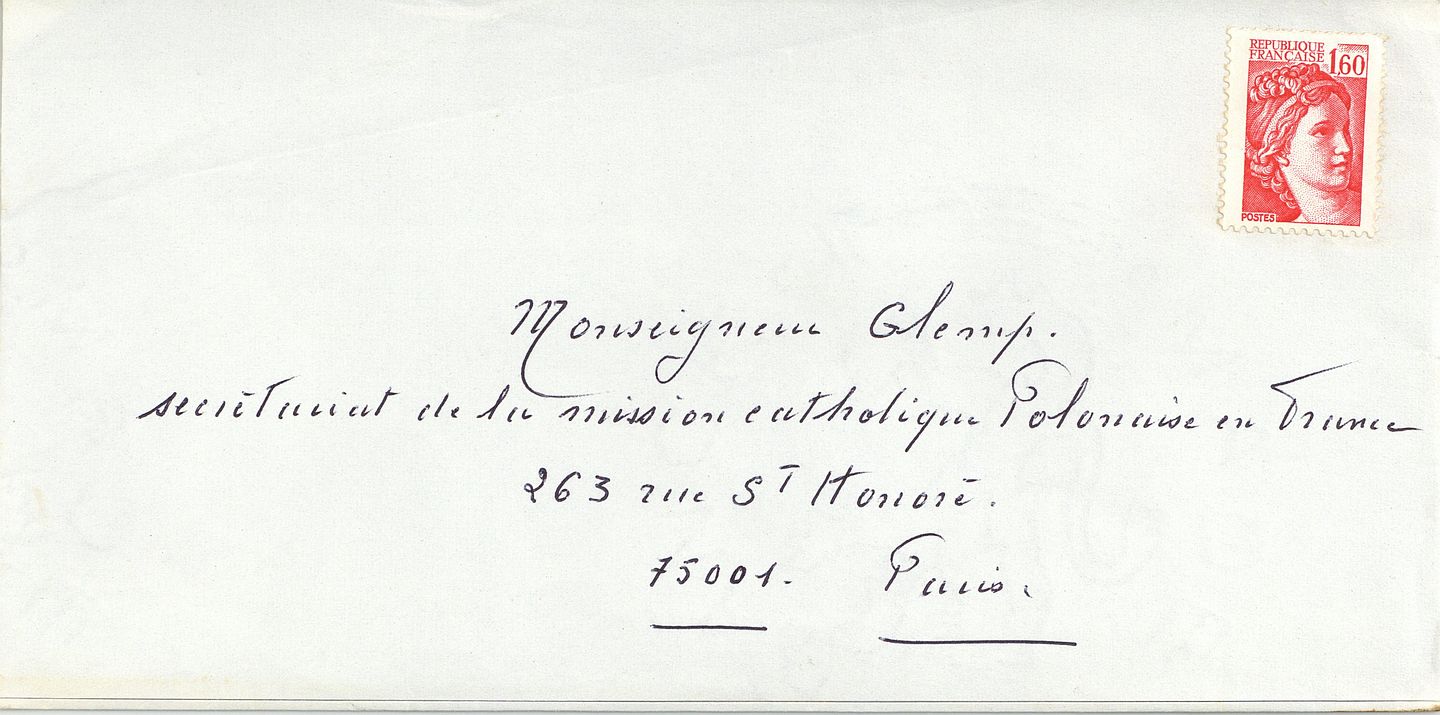 REPUBLIQUE
FRANÇAISE 1,60
POSTES
Monseigneur Glemp.
secrétariat de la mission catholique Polonaise en France
263 rue ST Honoré.
75001. Paris.